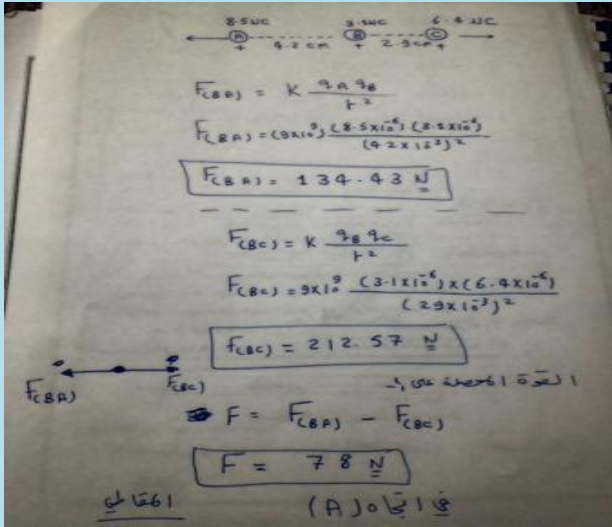 8.5NC 3.1NC 6.4 NC
A B C
+ 4.2 cm + 2.9cm +
F(BA) = K qA qB / r²
F(BA) = (9x10⁹) (8.5x10⁻⁶) (3.1x10⁻⁶) / (42x10⁻³)²
F(BA) = 134.43 N
F(BC) = K qB qC / r²
F(BC) = 9x10⁹ (3.1x10⁻⁶)x(6.4x10⁻⁶) / (29x10⁻³)²
F(BC) = 212.57 N
F(BA) F(BC)
القوة المحصلة على
F = F(BA) - F(BC)
F = 78 N
في اتجاه (A)